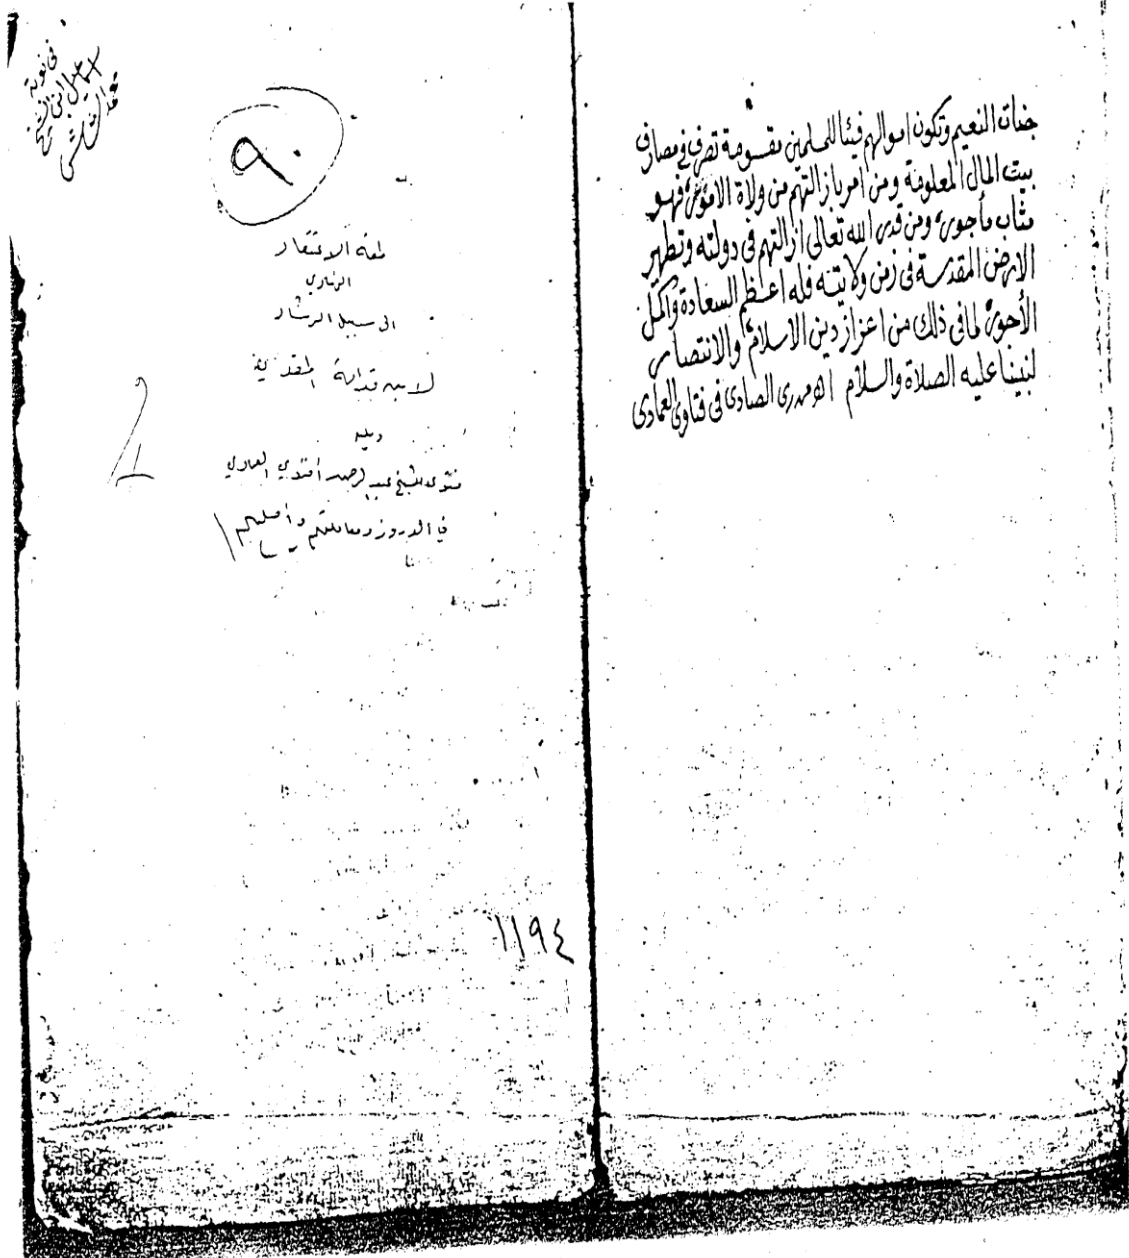 جنات النعيم وتكون اموالهم فيئا للمسلمين مقسومة تصرف في مصارف
بيت المال المعلومة ومن امر بازالتهم من ولاة الامور فهو
مثاب مأجور ومن قدر الله تعالى ازالتهم في دولته وتطهير
الارض المقدسة في زمن ولايته فله اعظم السعادة واكمل
الأجور لما في ذلك من اعزاز دين الاسلام والانتصار
لنبينا عليه الصلاة والسلام الصادى في فتاوى العمادى
في نوبة
٩٠
لمعة الاعتقاد
الهادي
الى سبيل الرشاد
لابن قدامة المقدسي
ويليه
فتوى للشيخ عبد الرحمن افندي العمادي
في الدروز ومعاملتهم
١١٩٤